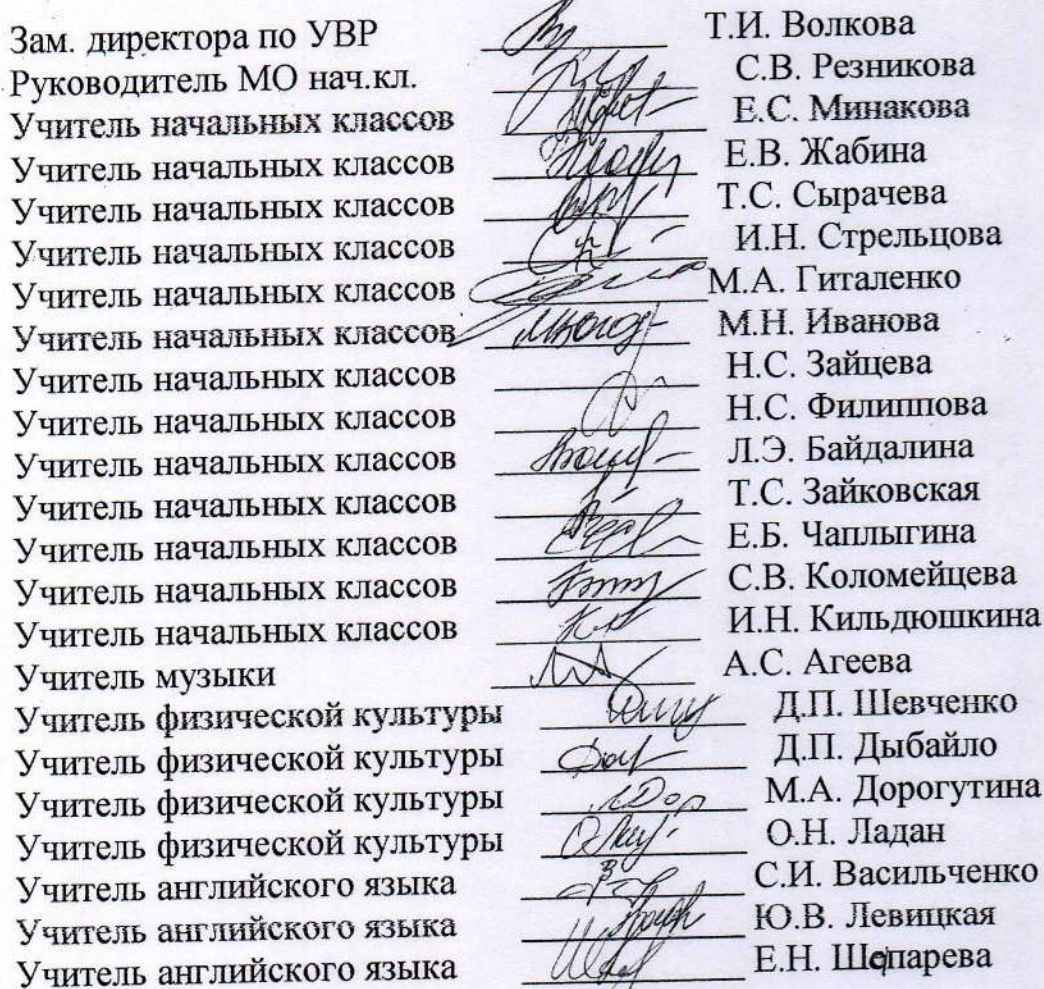 Зам. директора по УВР Т.И. Волкова
Руководитель МО нач.кл. С.В. Резникова
Учитель начальных классов Е.С. Минакова
Учитель начальных классов Е.В. Жабина
Учитель начальных классов Т.С. Сырачева
Учитель начальных классов И.Н. Стрельцова
Учитель начальных классов М.А. Гиталенко
Учитель начальных классов М.Н. Иванова
Учитель начальных классов Н.С. Зайцева
Учитель начальных классов Н.С. Филиппова
Учитель начальных классов Л.Э. Байдалина
Учитель начальных классов Т.С. Зайковская
Учитель начальных классов Е.Б. Чаплыгина
Учитель начальных классов С.В. Коломейцева
Учитель начальных классов И.Н. Кильдюшкина
Учитель музыки А.С. Агеева
Учитель физической культуры Д.П. Шевченко
Учитель физической культуры Д.П. Дыбайло
Учитель физической культуры М.А. Дорогутина
Учитель физической культуры О.Н. Ладан
Учитель английского языка С.И. Васильченко
Учитель английского языка Ю.В. Левицкая
Учитель английского языка Е.Н.